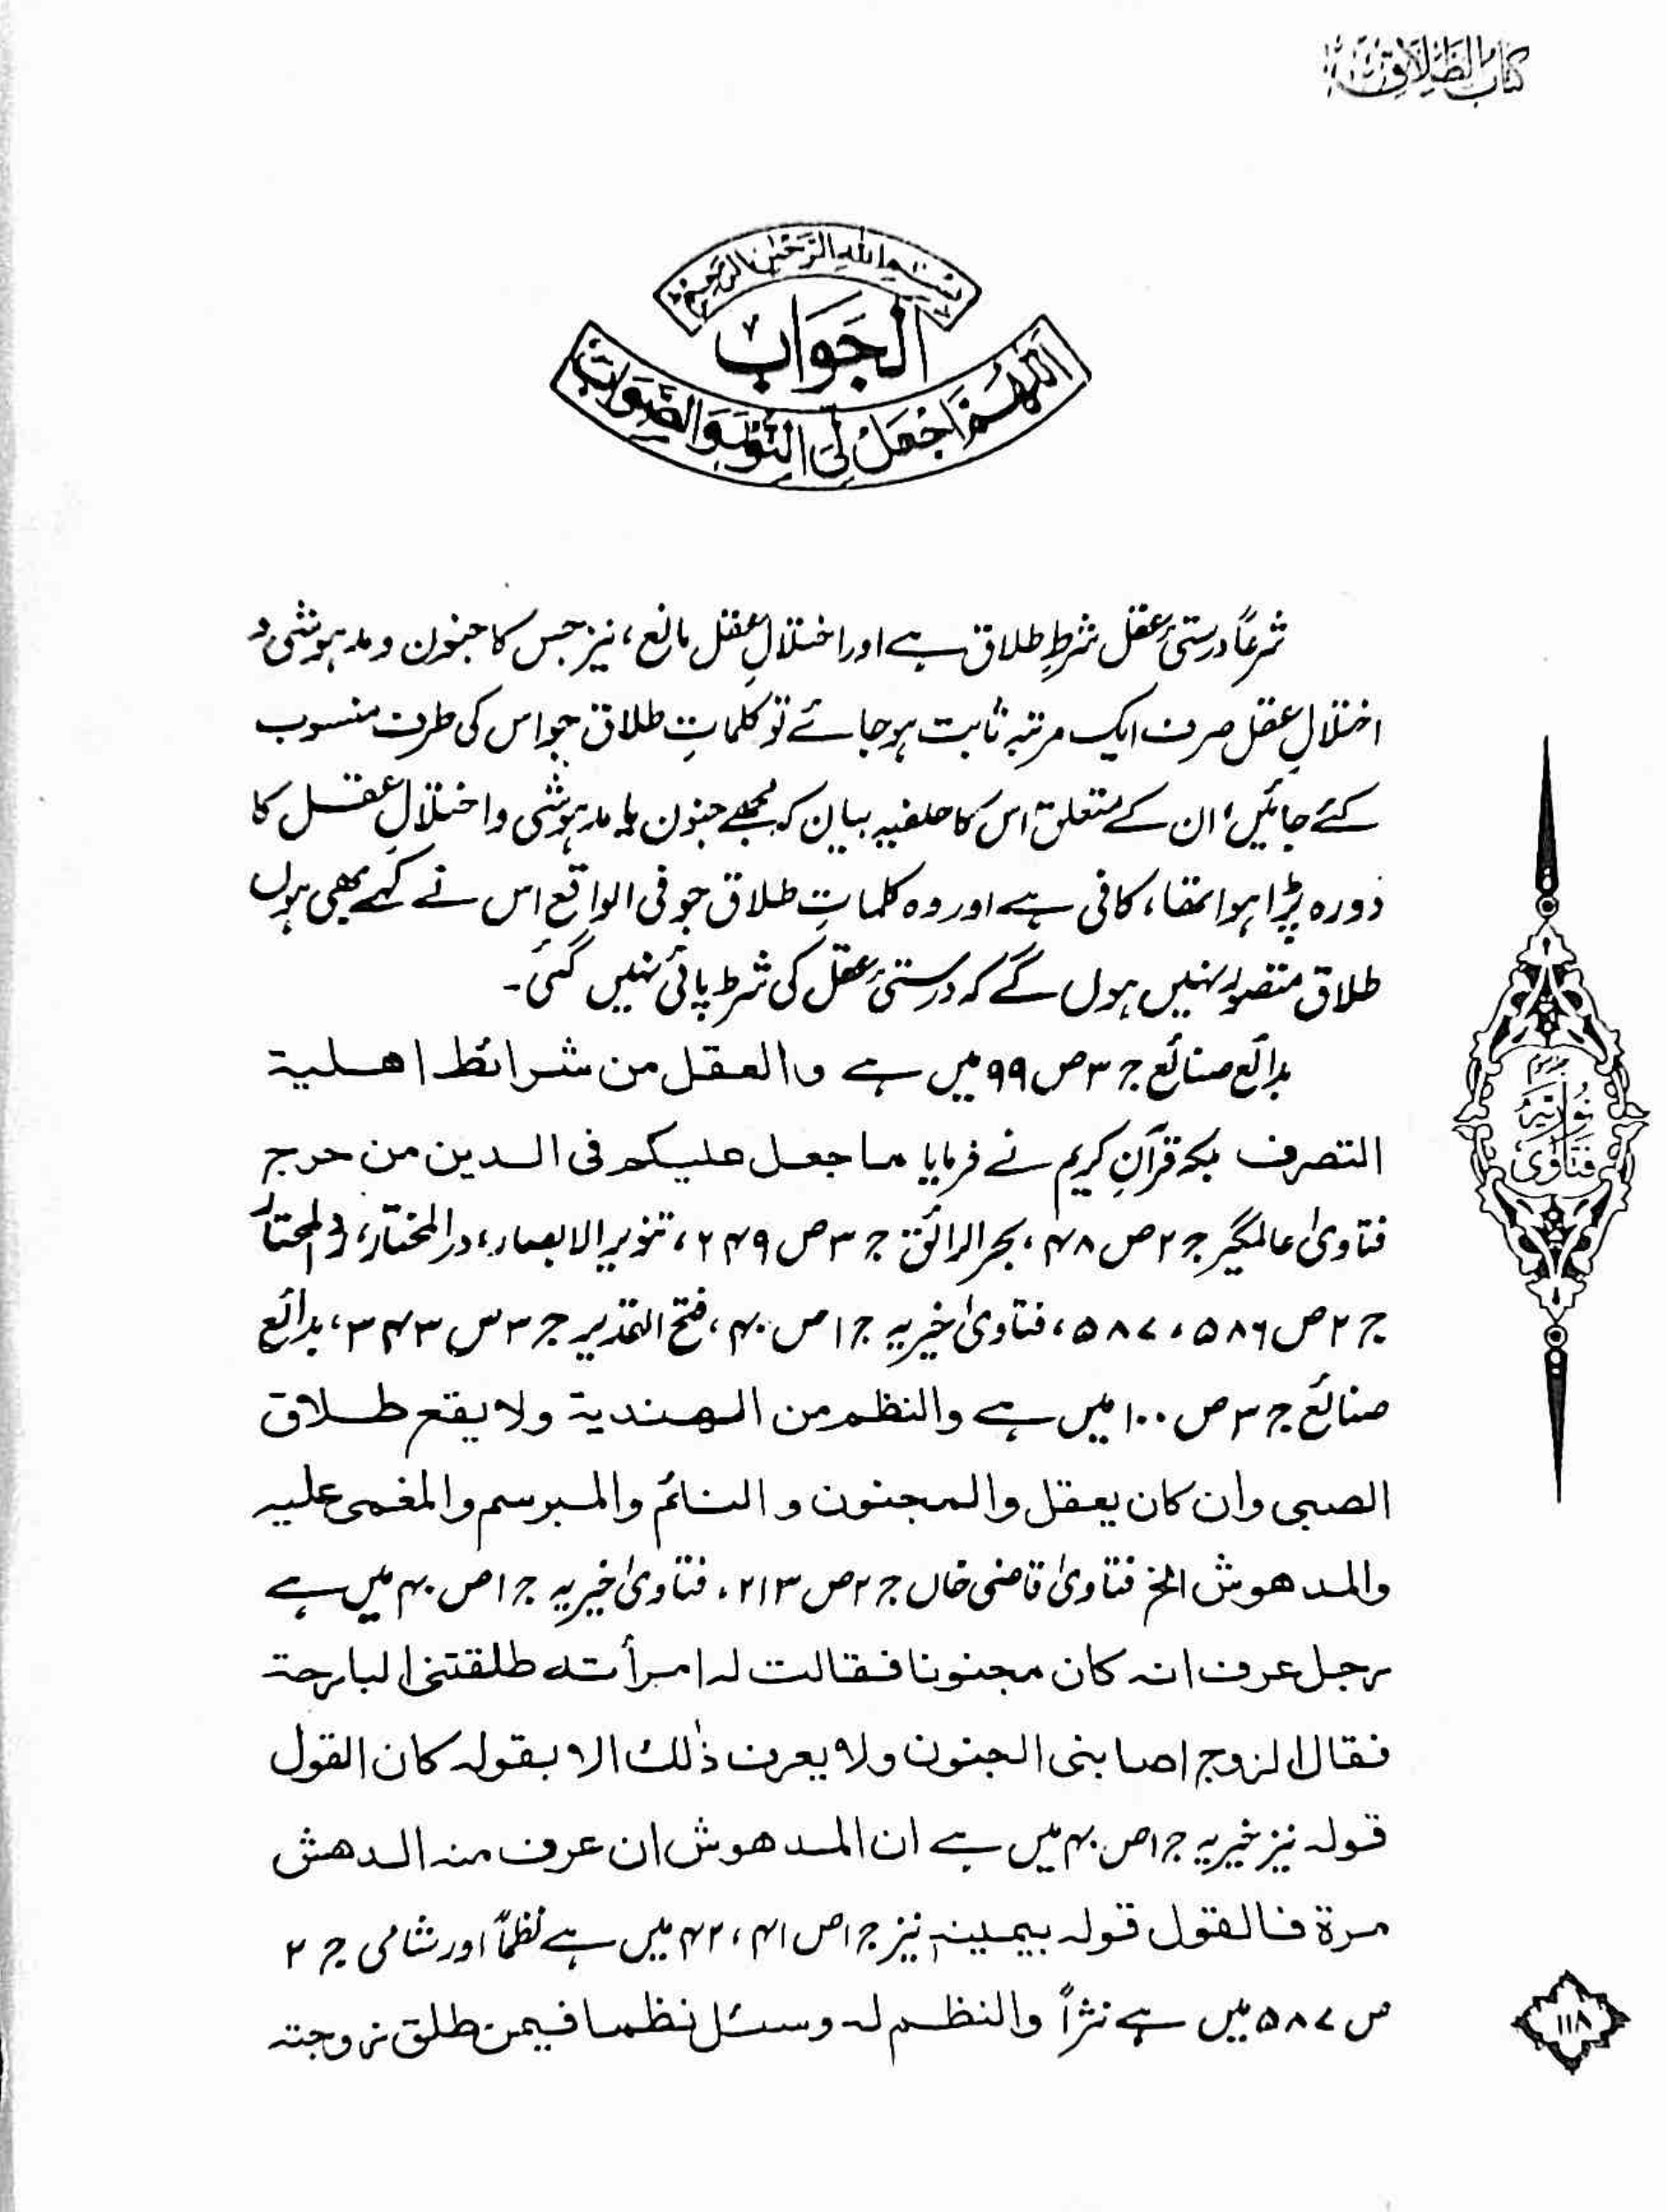 کتاب الطلاق
بسم اللہ الرحمن الرحیم
الجَوَابُ
اللّٰهُمَّ اجْعَلْ لِیَ النُّوْرَ وَالصَّوَابَ
شرعًا درستیٔ عقل شرطِ طلاق ہے اور اختلالِ عقل مانع، نیز جس کا جنون و مدہوشی و
اختلالِ عقل صرف ایک مرتبہ ثابت ہو جائے تو کلماتِ طلاق جو اس کی طرف منسوب
کئے جائیں، ان کے متعلق اس کا حلفیہ بیان کہ مجھے جنون یا مدہوشی و اختلالِ عقل کا
دورہ پڑا ہوا تھا، کافی ہے اور وہ کلماتِ طلاق جو فی الواقع اس نے کہے بھی ہوں
طلاق متصور نہیں ہوں گے کہ درستیٔ عقل کی شرط پائی نہیں گئی۔
بدائع صنائع ج ۳ ص ۹۹ میں ہے والعقل من شرائط اهلیة
التصرف بلکہ قرآنِ کریم نے فرمایا ما جعل علیکم فی الدین من حرج
فتاویٰ عالمگیر ج ۲ ص ۴۸، بحر الرائق ج ۳ ص ۲۴۹، تنویر الابصار، در المختار، رد المحتار
ج ۲ ص ۵۸۶، ۵۸۷، فتاویٰ خیریہ ج ۱ ص ۴۰، فتح القدیر ج ۳ س ۳۴۳، بدائع
صنائع ج ۳ ص ۱۰۰ میں ہے والنظم من الهندیة ولا یقع طلاق
الصبی وان کان یعقل والمجنون والنائم والمبرسم والمغمی علیه
والمدهوش الخ فتاویٰ قاضی خاں ج ۲ ص ۲۱۳، فتاویٰ خیریہ ج ۱ ص ۴۰ میں ہے
رجل عرف انه کان مجنونا فقالت له امرأته طلقتنی البارحة
فقال الزوج اصابنی الجنون ولا یعرف ذٰلك الا بقوله کان القول
قوله نیز خیریہ ج ۱ ص ۴۰ میں ہے ان المدهوش ان عرف منه الدهش
مرة فالقول قوله بیمینه نیز ج ۱ ص ۴۱، ۴۲ میں ہے نظمًا اور شامی ج ۲
ص ۵۸۷ میں ہے نثراً والنظم له وسئل نظما فیمن طلق زوجته
فتاویٰ نوریہ
۱۱۸